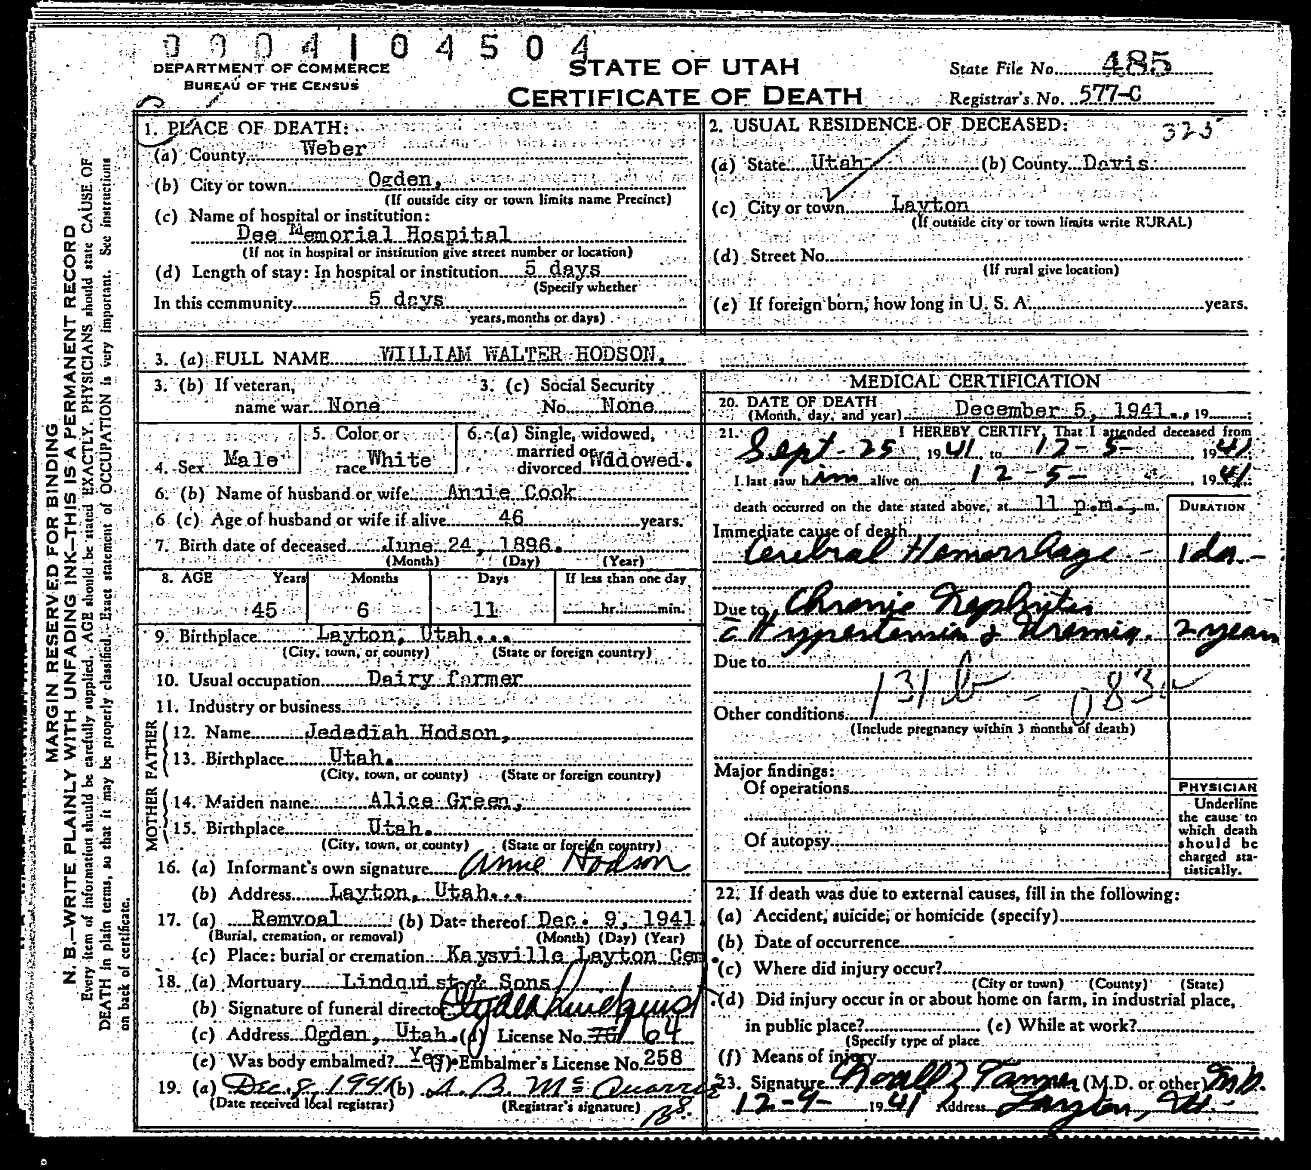 0004104504
DEPARTMENT OF COMMERCE
BUREAU OF THE CENSUS
STATE OF UTAH
CERTIFICATE OF DEATH
State File No. 485
Registrar's No. 577-C
MARGIN RESERVED FOR BINDING
N. B.—WRITE PLAINLY WITH UNFADING INK—THIS IS A PERMANENT RECORD
Every item of information should be carefully supplied. AGE should be stated EXACTLY. PHYSICIANS should state CAUSE OF
DEATH in plain terms, so that it may be properly classified. Exact statement of OCCUPATION is very important. See instructions
on back of certificate.
1. PLACE OF DEATH:
(a) County Weber
(b) City or town Ogden,
(If outside city or town limits name Precinct)
(c) Name of hospital or institution:
Dee Memorial Hospital
(If not in hospital or institution give street number or location)
(d) Length of stay: In hospital or institution 5 days
(Specify whether
In this community 5 days
years, months or days)
2. USUAL RESIDENCE OF DECEASED: 325
(a) State Utah (b) County Davis
(c) City or town Layton
(If outside city or town limits write RURAL)
(d) Street No.
(If rural give location)
(e) If foreign born, how long in U. S. A. years.
3. (a) FULL NAME WILLIAM WALTER HODSON.
3. (b) If veteran, name war None
3. (c) Social Security No. None
4. Sex Male
5. Color or race White
6. (a) Single, widowed, married or divorced Widowed.
6. (b) Name of husband or wife Annie Cook
6 (c) Age of husband or wife if alive 46 years.
7. Birth date of deceased June 24, 1896.
(Month) (Day) (Year)
8. AGE Years Months Days If less than one day
45 6 11 hr. min.
9. Birthplace Layton, Utah...
(City, town, or county) (State or foreign country)
10. Usual occupation Dairy farmer
11. Industry or business
FATHER
12. Name Jedediah Hodson,
13. Birthplace Utah.
(City, town, or county) (State or foreign country)
MOTHER
14. Maiden name Alice Green,
15. Birthplace Utah.
(City, town, or county) (State or foreign country)
16. (a) Informant's own signature Annie Hodson
(b) Address Layton, Utah...
17. (a) Remvoal (b) Date thereof Dec. 9, 1941
(Burial, cremation, or removal) (Month) (Day) (Year)
(c) Place: burial or cremation Kaysville Layton Cem.
18. (a) Mortuary Lindquist & Sons
(b) Signature of funeral director Clyde Lindquist
(c) Address Ogden, Utah. (d) License No. 64
(e) Was body embalmed? Yes. (f) Embalmer's License No. 258
19. (a) Dec. 8, 1941 (b)
(Date received local registrar) (Registrar's signature)
MEDICAL CERTIFICATION
20. DATE OF DEATH
(Month, day, and year) December 5, 1941., 19
21. I HEREBY CERTIFY, That I attended deceased from
Sept 25, 1941 to 12-5-, 1941
I last saw him alive on 12-5-, 1941
death occurred on the date stated above, at 11 p.m., m.
DURATION
Immediate cause of death
Cerebral Hemorrhage - 1 da.-
Due to Chronic Nephritis
c̄ Hypertension & Uremia. 2 years
Due to
131 b - 083a
Other conditions
(Include pregnancy within 3 months of death)
Major findings:
Of operations
Of autopsy
PHYSICIAN
Underline
the cause to
which death
should be
charged sta-
tistically.
22. If death was due to external causes, fill in the following:
(a) Accident, suicide, or homicide (specify)
(b) Date of occurrence
(c) Where did injury occur?
(City or town) (County) (State)
(d) Did injury occur in or about home on farm, in industrial place,
in public place? (e) While at work?
(Specify type of place
(f) Means of injury
23. Signature Noall Z Tanner (M.D. or other) M.D.
12-9- 1941 Address Layton, Ut.-